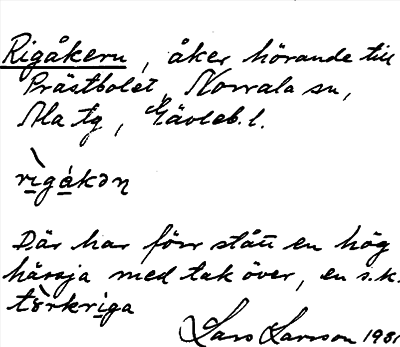 Rigåkern, åker hörande till
Prästbolet, Norrala sn,
Ala tg, Gävleb. l.
rìgákən
Där har förr stått en hög
hässja med tak över, en s.k.
tö̀rkriga
Lars Larsson 1931